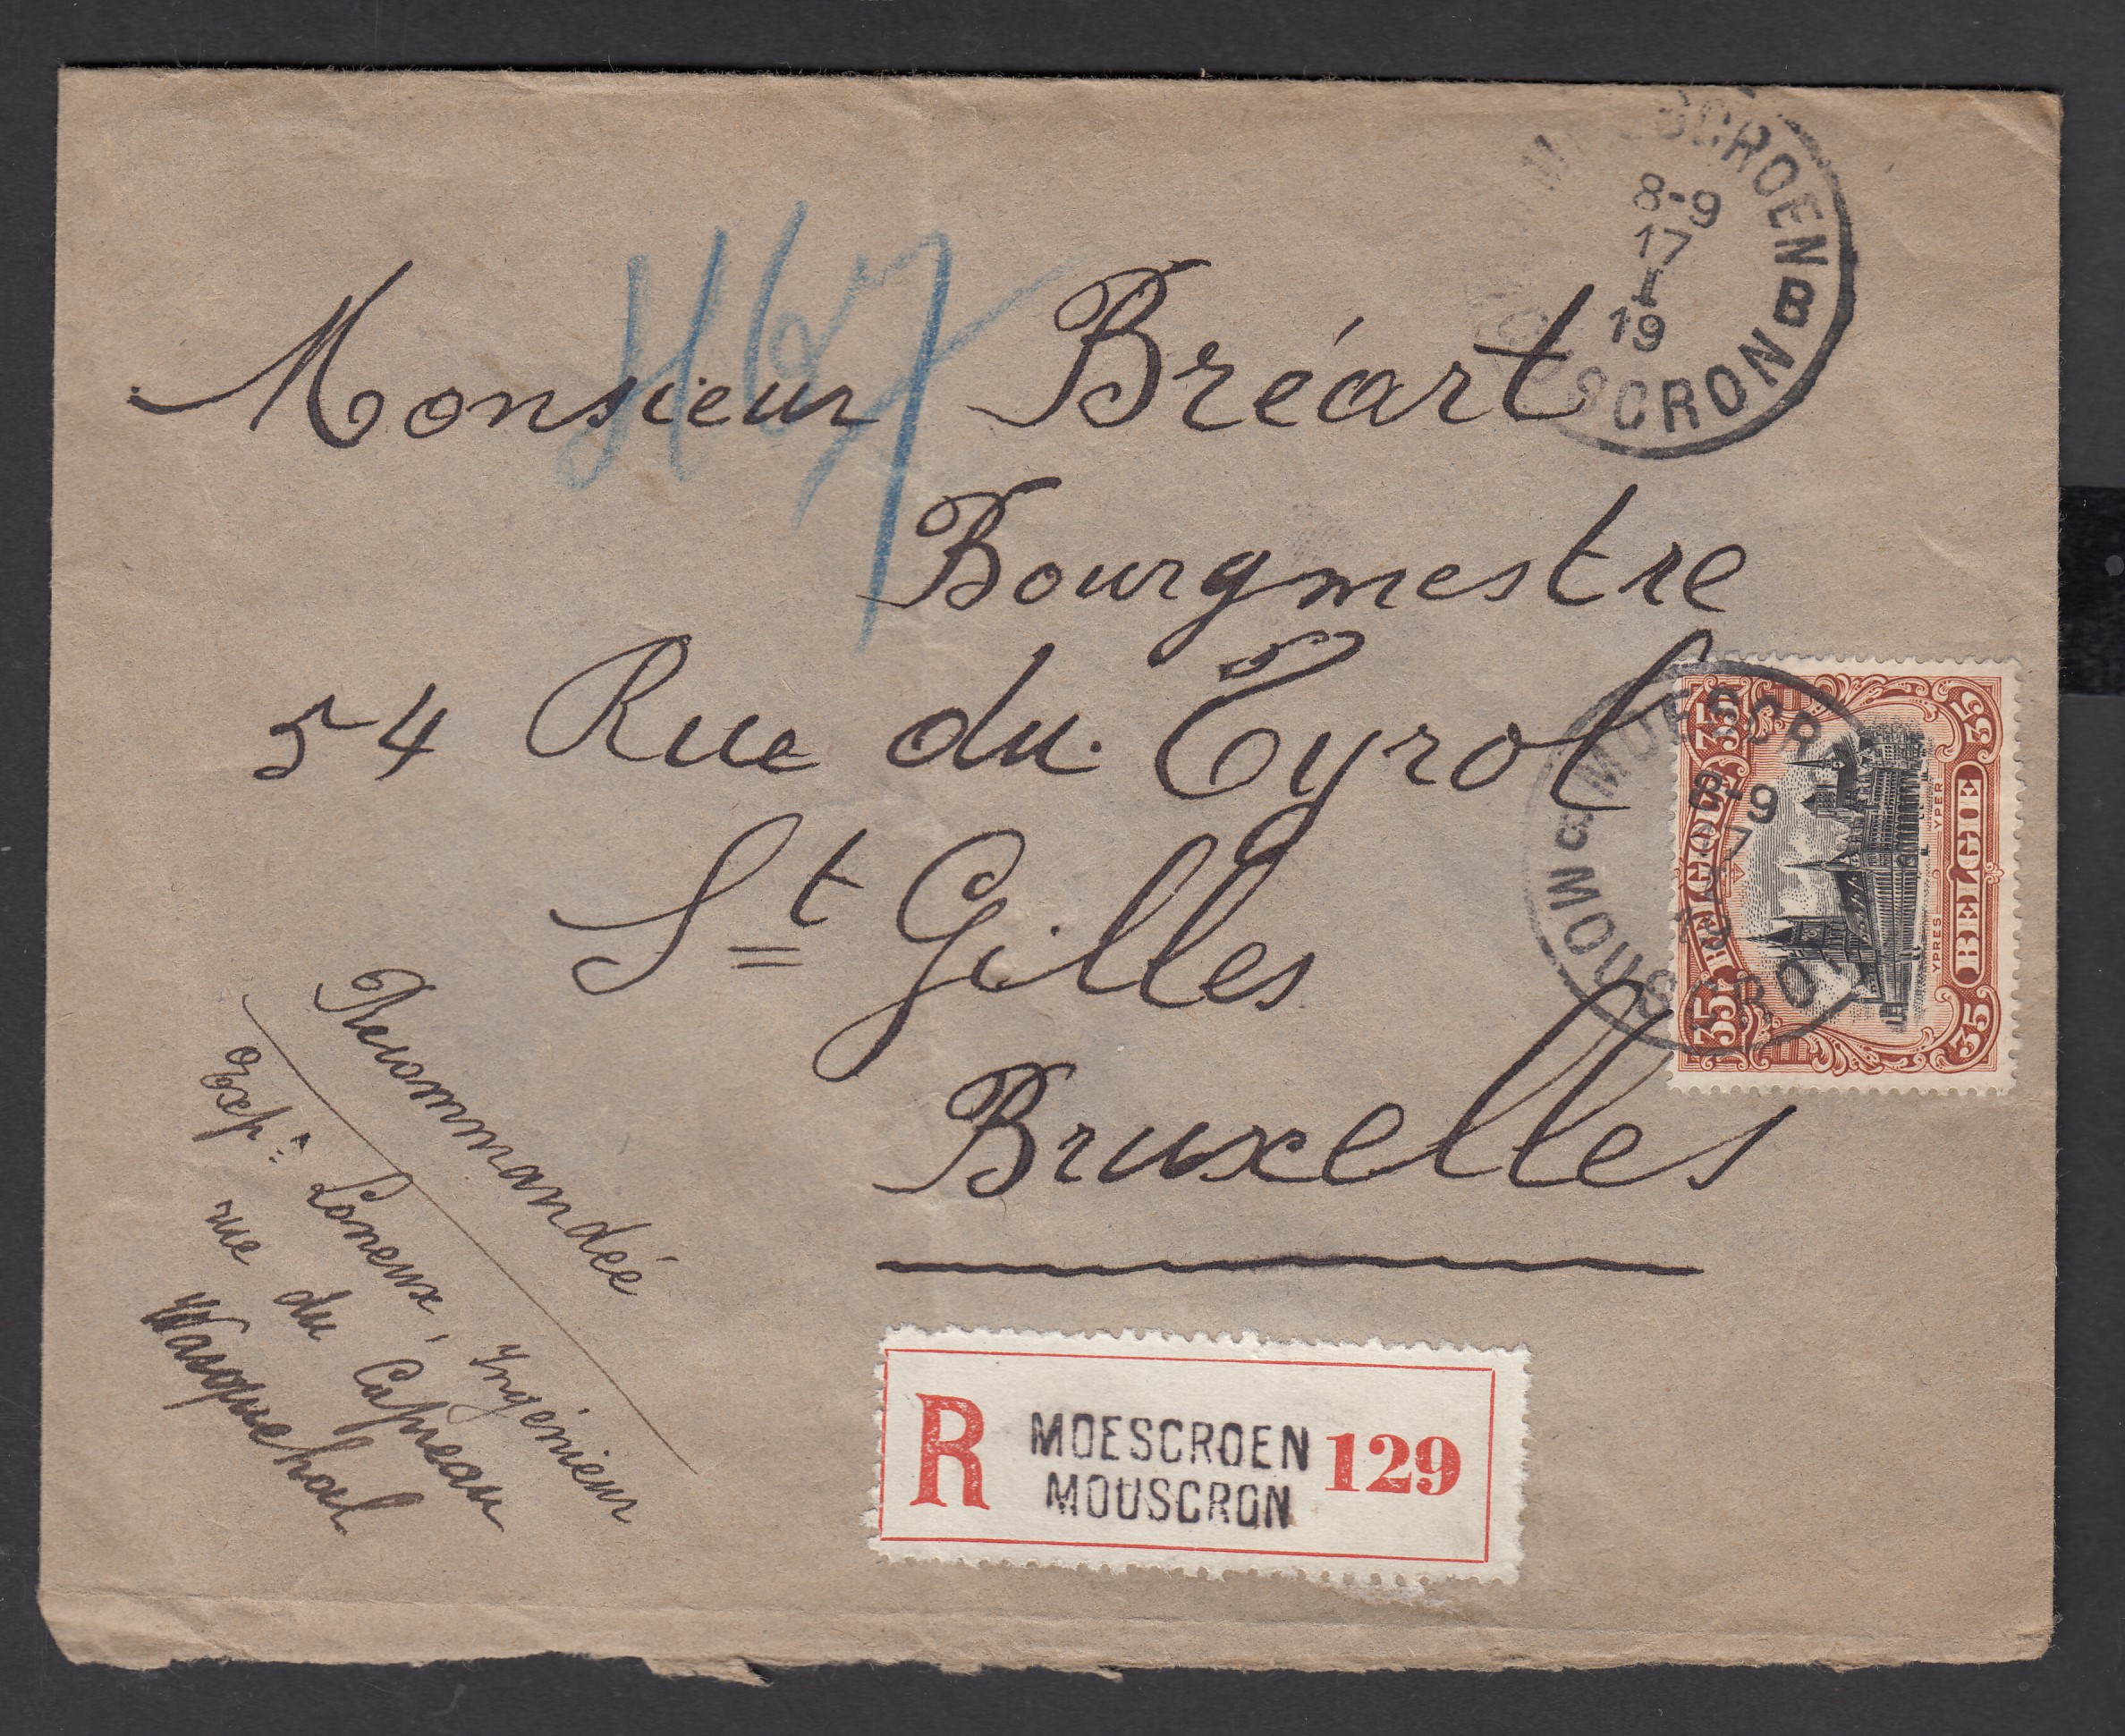 MOESCROEN
8-9
17
I
19
MOUSCRON B
Monsieur Bréart
Bourgmestre
54 Rue du Tyrol
St Gilles
Bruxelles
35 BELGIQUE 35
YPRES YPER
35 BELGIË 35
MOUSCRON
8-9
Recommandée
Exp: Loneux, Ingénieur
rue du Capreau
Wasquehal
R MOESCROEN 129
MOUSCRON